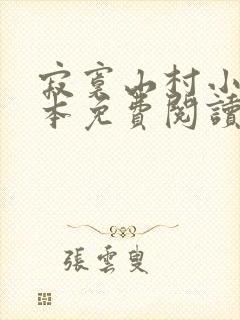 寂寞山村小
本免費閱讀
張雲叟